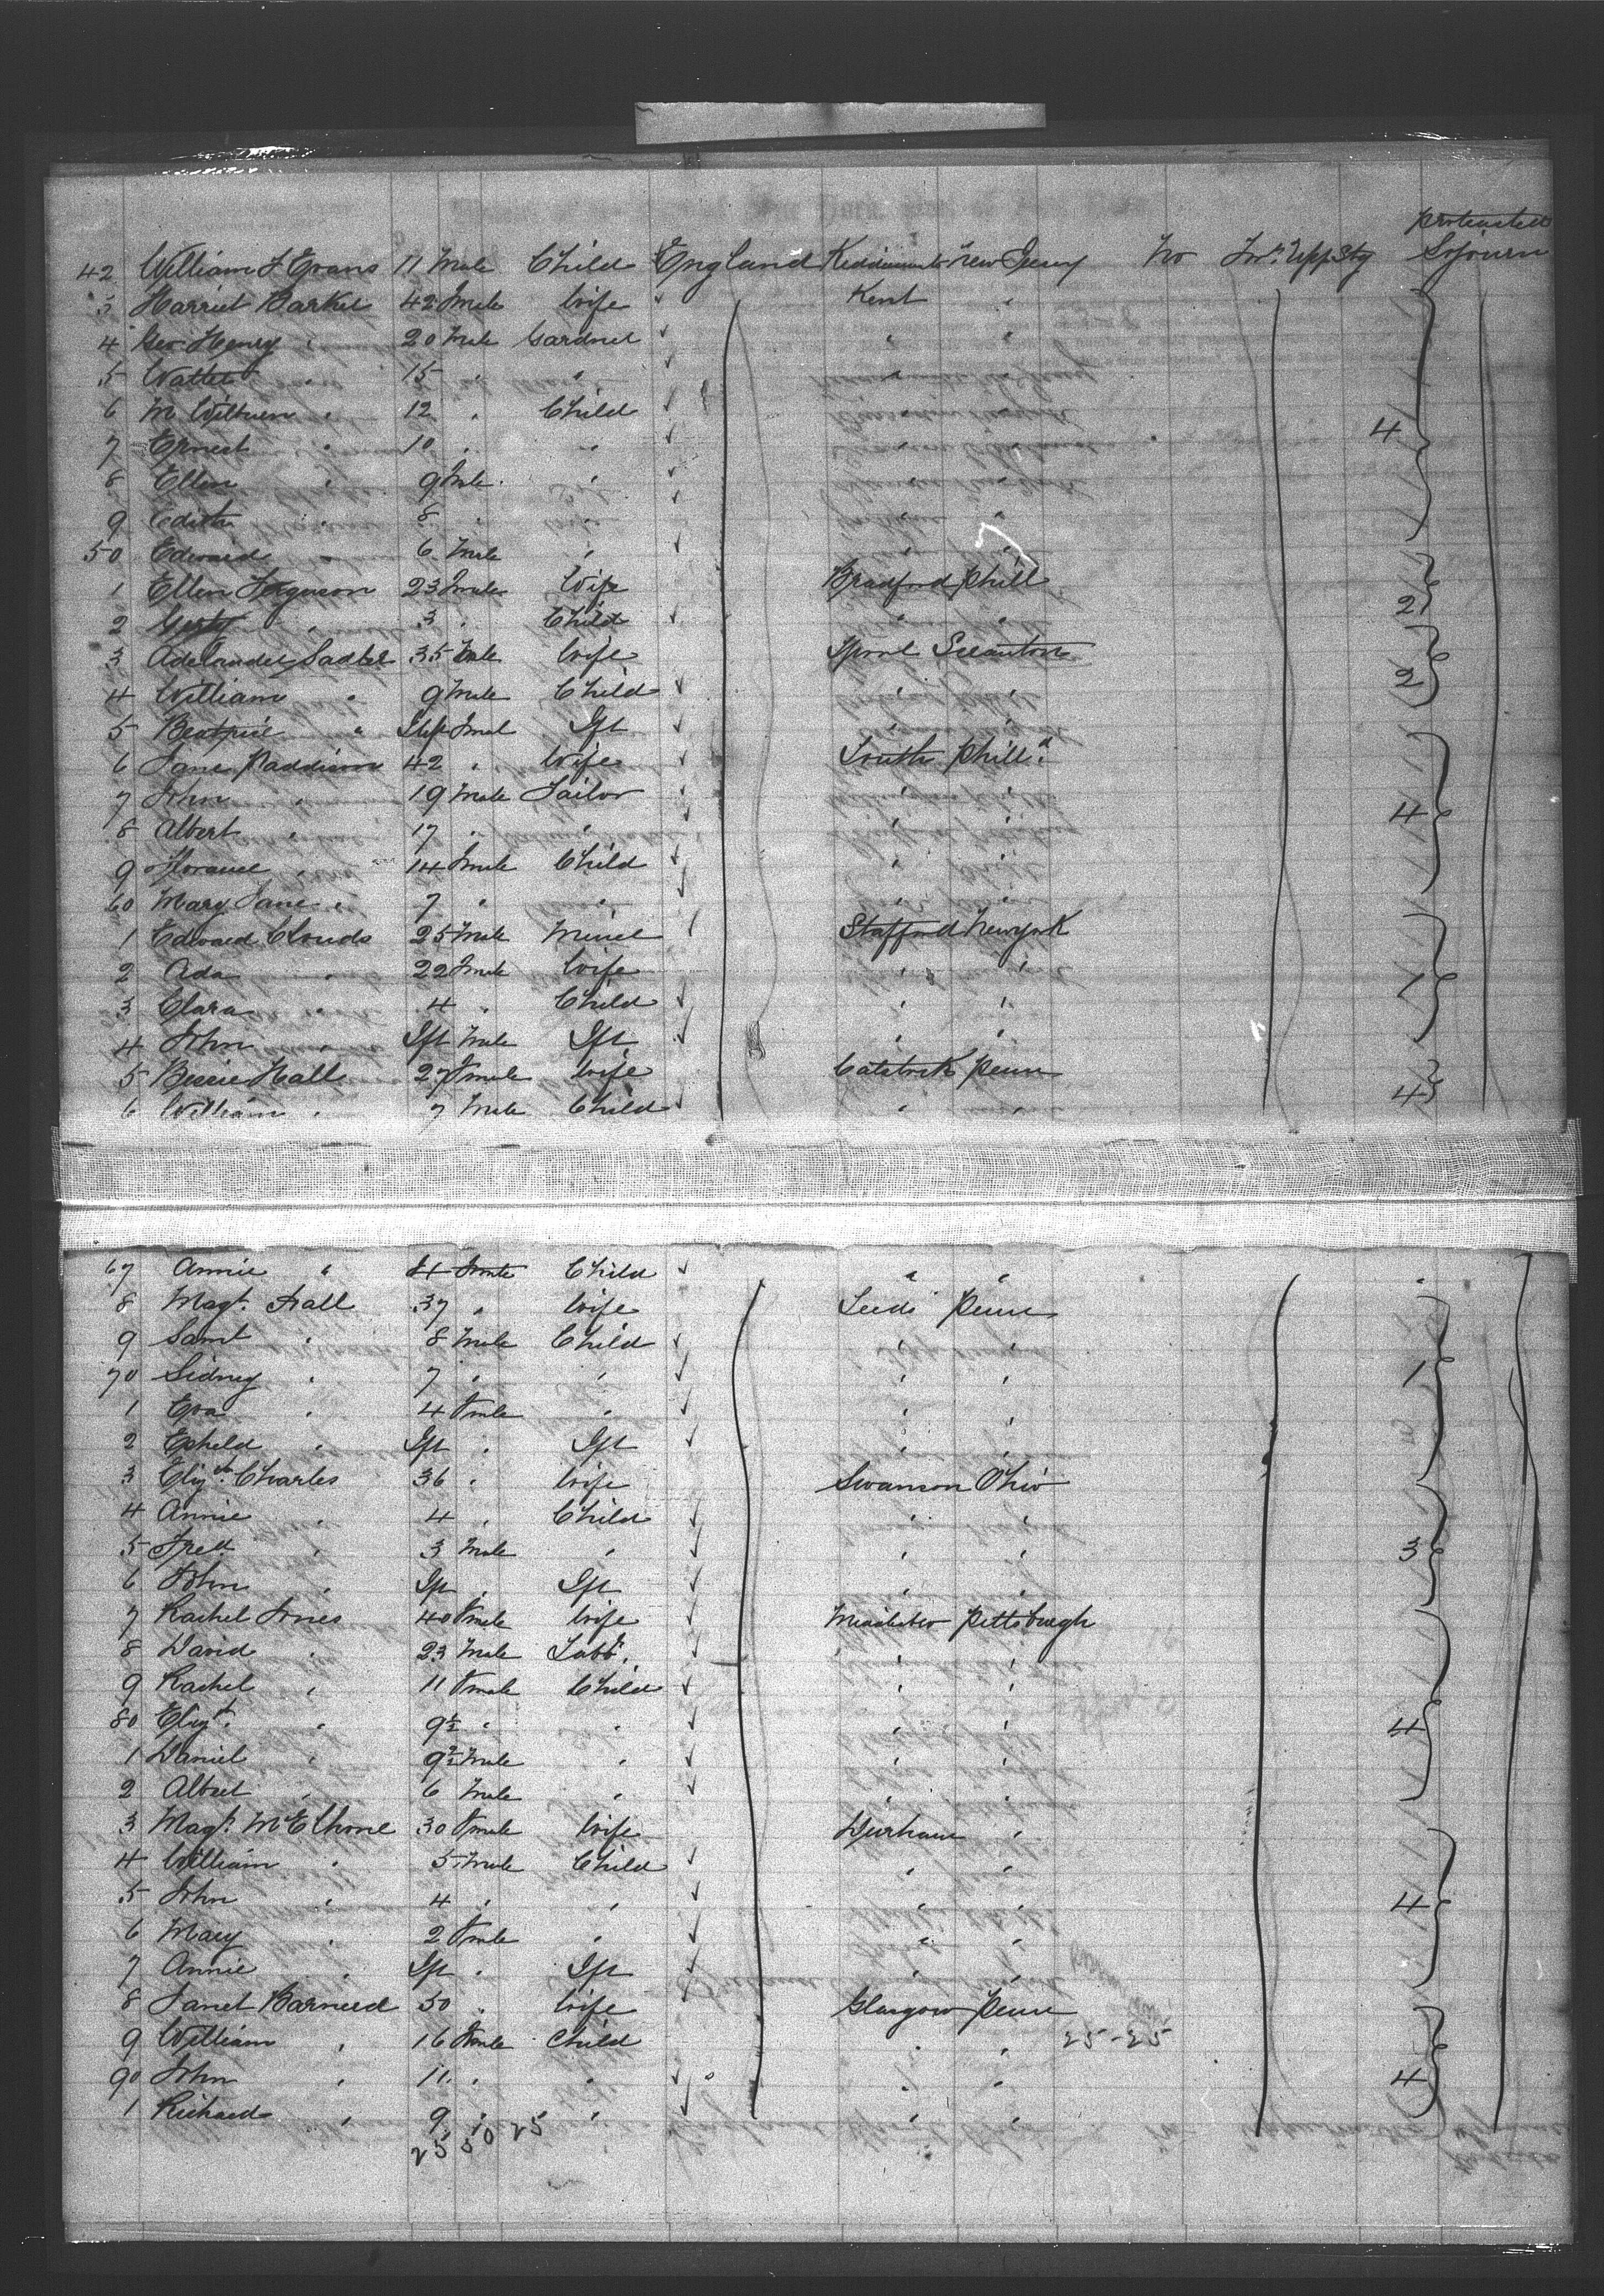 protracted
42 William J Evans 11 Male Child England New Jersey No Inr. Upp Stg Sojourn
3 Harriet Barker 42 Fmale Wife Kent "
4 Geo. Henry " 20 Male Gardner " "
5 Walter " 15 " " "
6 M Wilburn " 12 " Child
7 Ernest " 10 " " 4
8 Ellen " 9 Fmle " "
9 Edith " 8 " " "
50 Edward " 6 Male " " "
1 Ellen Ferguson 23 Fmale Wife Bradford Phill
2 " 3 " Child " " 2
3 Sadler 35 Fmale Wife Scranton
4 William " 9 Male Child " " 2
5 Beatrice " Inft Fmal Ift "
6 Jane Paddison 42 " Wife South Phill.a
7 John " 19 Male Tailor " "
8 Albert " 17 " " " " 4
9 Florance " 14 Fmale Child " "
60 Mary Jane " 7 " " " "
1 Edward Clouds 25 Male Miner Stafford Newyork
2 Ada " 22 Fmale Wife " " 1
3 Clara " 4 " Child " "
4 John " Ift Male Ift " "
5 Bessie Hall 27 Fmale Wife Penn
6 William " 7 Male Child " " 4
67 Annie " 4 Fmale Child " "
8 Magt. Hall 37 " Wife Leeds Penn
9 Saml " 8 Male Child " "
70 Sidney " 7 " " " " 1
1 Eva " 4 Fmale " " "
2 " Ift " Ift " "
3 Eliz.th Charles 36 " Wife Swanson Ohio
4 Annie " 4 " Child " "
5 Fred " 3 Male " " " 3
6 John " Ift " Ift " "
7 Rachel Jones 40 Fmale Wife Pittsburgh
8 David " 23 Male Labr. " "
9 Rachel " 11 Fmale Child " "
80 Eliz.th " 9½ " " " " 4
1 Daniel " 9½ Male " " "
2 Albert " 6 Male " "
3 Magt. McElhone 30 Fmale Wife Durham "
4 William " 5 Male Child " "
5 John " 4 " " " " 4
6 Mary " 2 Fmale " " "
7 Annie " Ift " Ift " "
8 Janet Barneed 50 " Wife Glasgow Penn
9 William " 16 Fmale Child " " 25-25
90 John " 11 " " " " 4
1 Richard " 9 " " " "
25 50 25